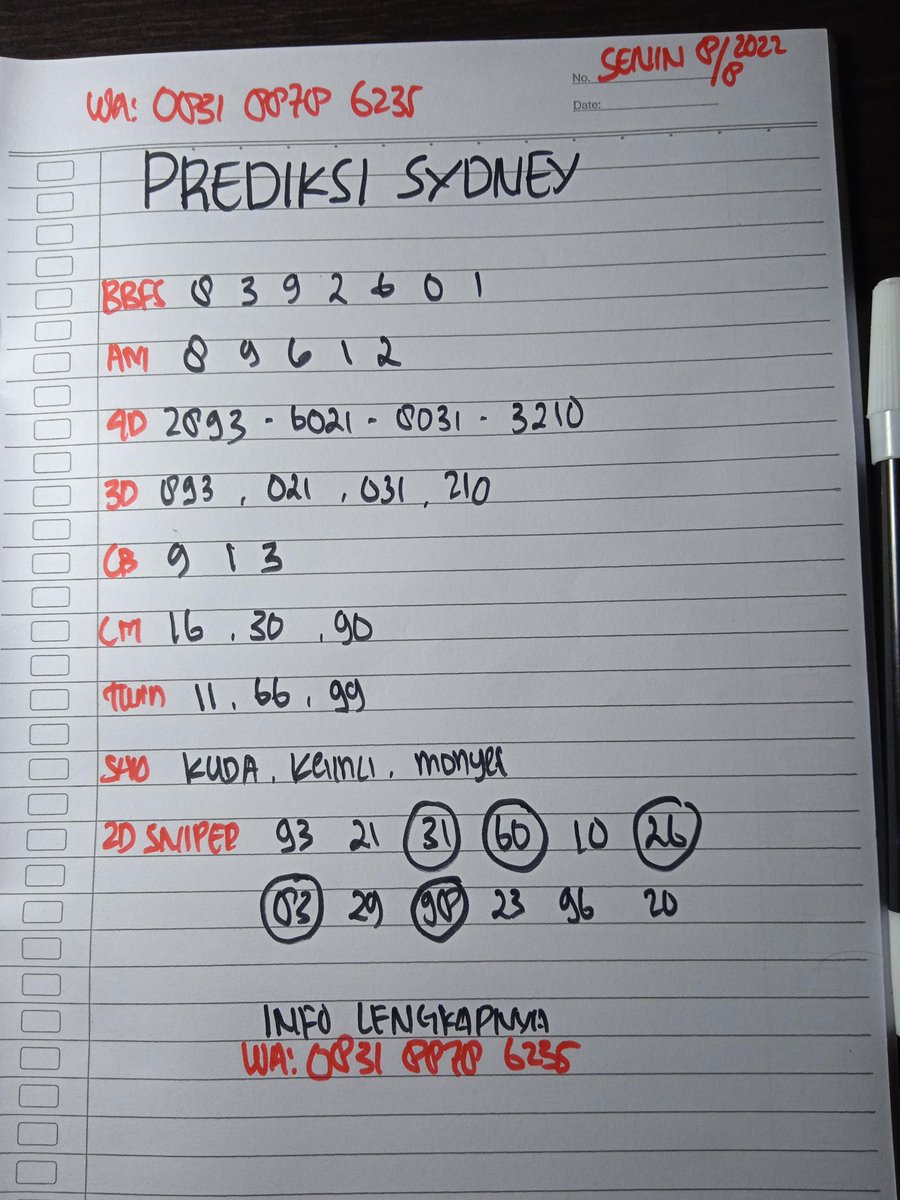 SENIN 8/8/2022
No.
WA: 0831 8878 6235
Date:
PREDIKSI SYDNEY
BBFS 8 3 9 2 6 0 1
AM 8 9 6 1 2
4D 2893 - 6021 - 8031 - 3210
3D 893 , 021 , 031 , 210
CB 9 1 3
CM 16 , 30 , 90
twin 11 , 66 , 99
SHIO KUDA , Kelinci , monyet
2D SNIPER 93 21 31 60 10 26
83 29 98 23 96 20
INFO LENGKAPNYA
WA: 0831 8878 6235